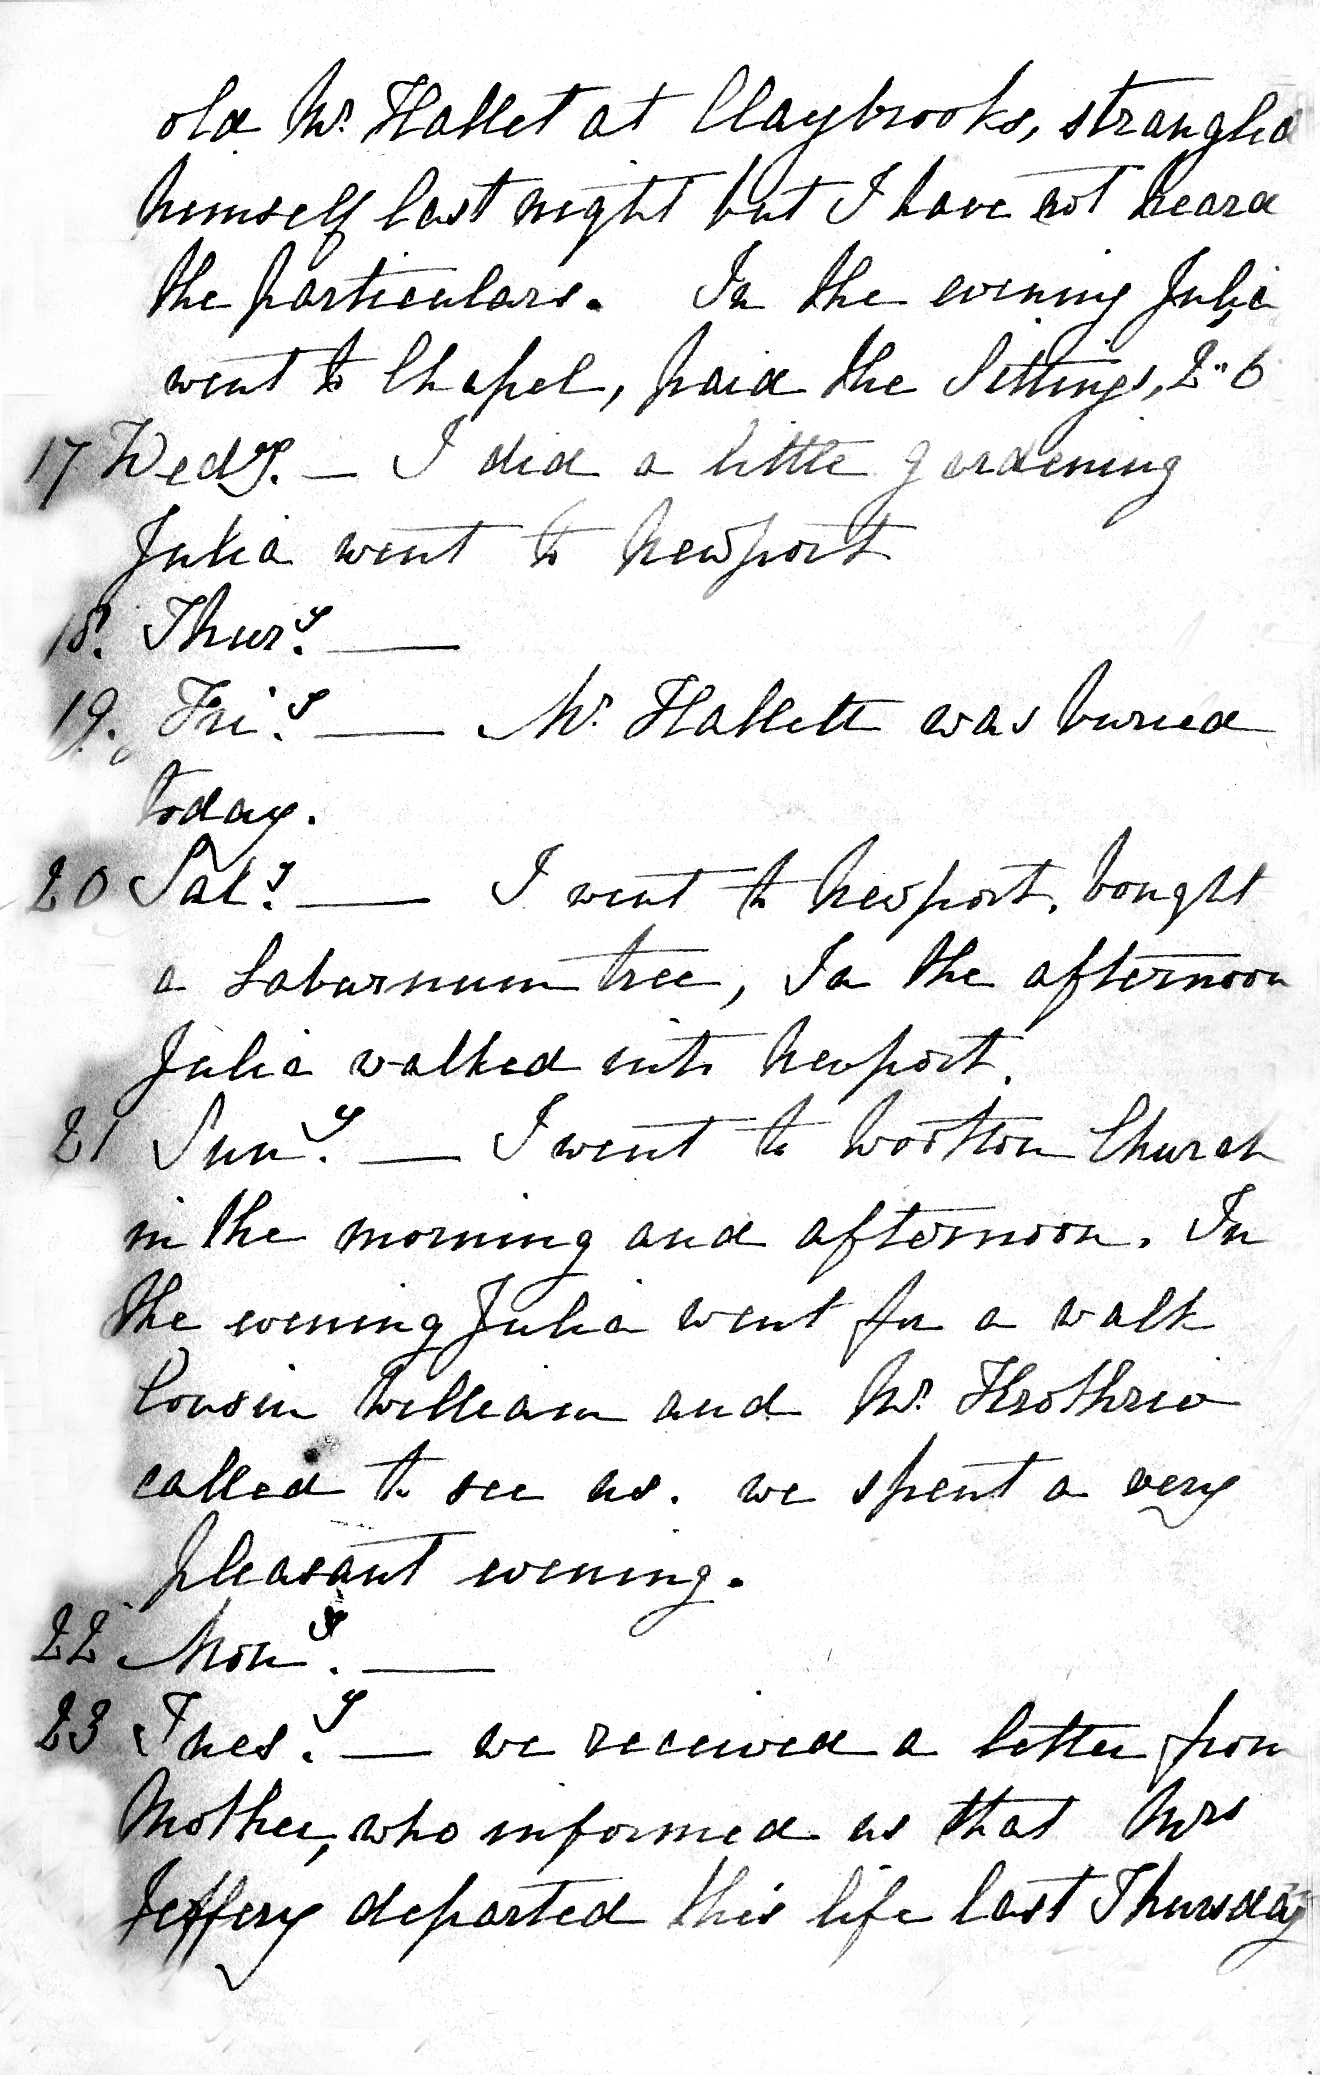 old Mr. Hallet at Claybrooks, strangled
himself last night but I have not heard
the particulars. In the evening Julia
went to Chapel, paid the Sittings, 2"6
17 Wedy. — I did a little gardening
Julia went to Newport
18. Thury. —
19. Friy. — Mr. Hallett was buried
today.
20 Saty. — I went to Newport, bought
a Laburnum tree, In the afternoon
Julia walked into Newport.
21 Suny. — I went to Wootton Church
in the morning and afternoon. In
the evening Julia went for a walk
Cousin William and Mr.
called to see us. we spent a very
pleasant evening.
22 Mony. —
23 Tuesy. — we received a letter from
Mother, who informed us that Mrs
Jeffery departed this life last Thursday